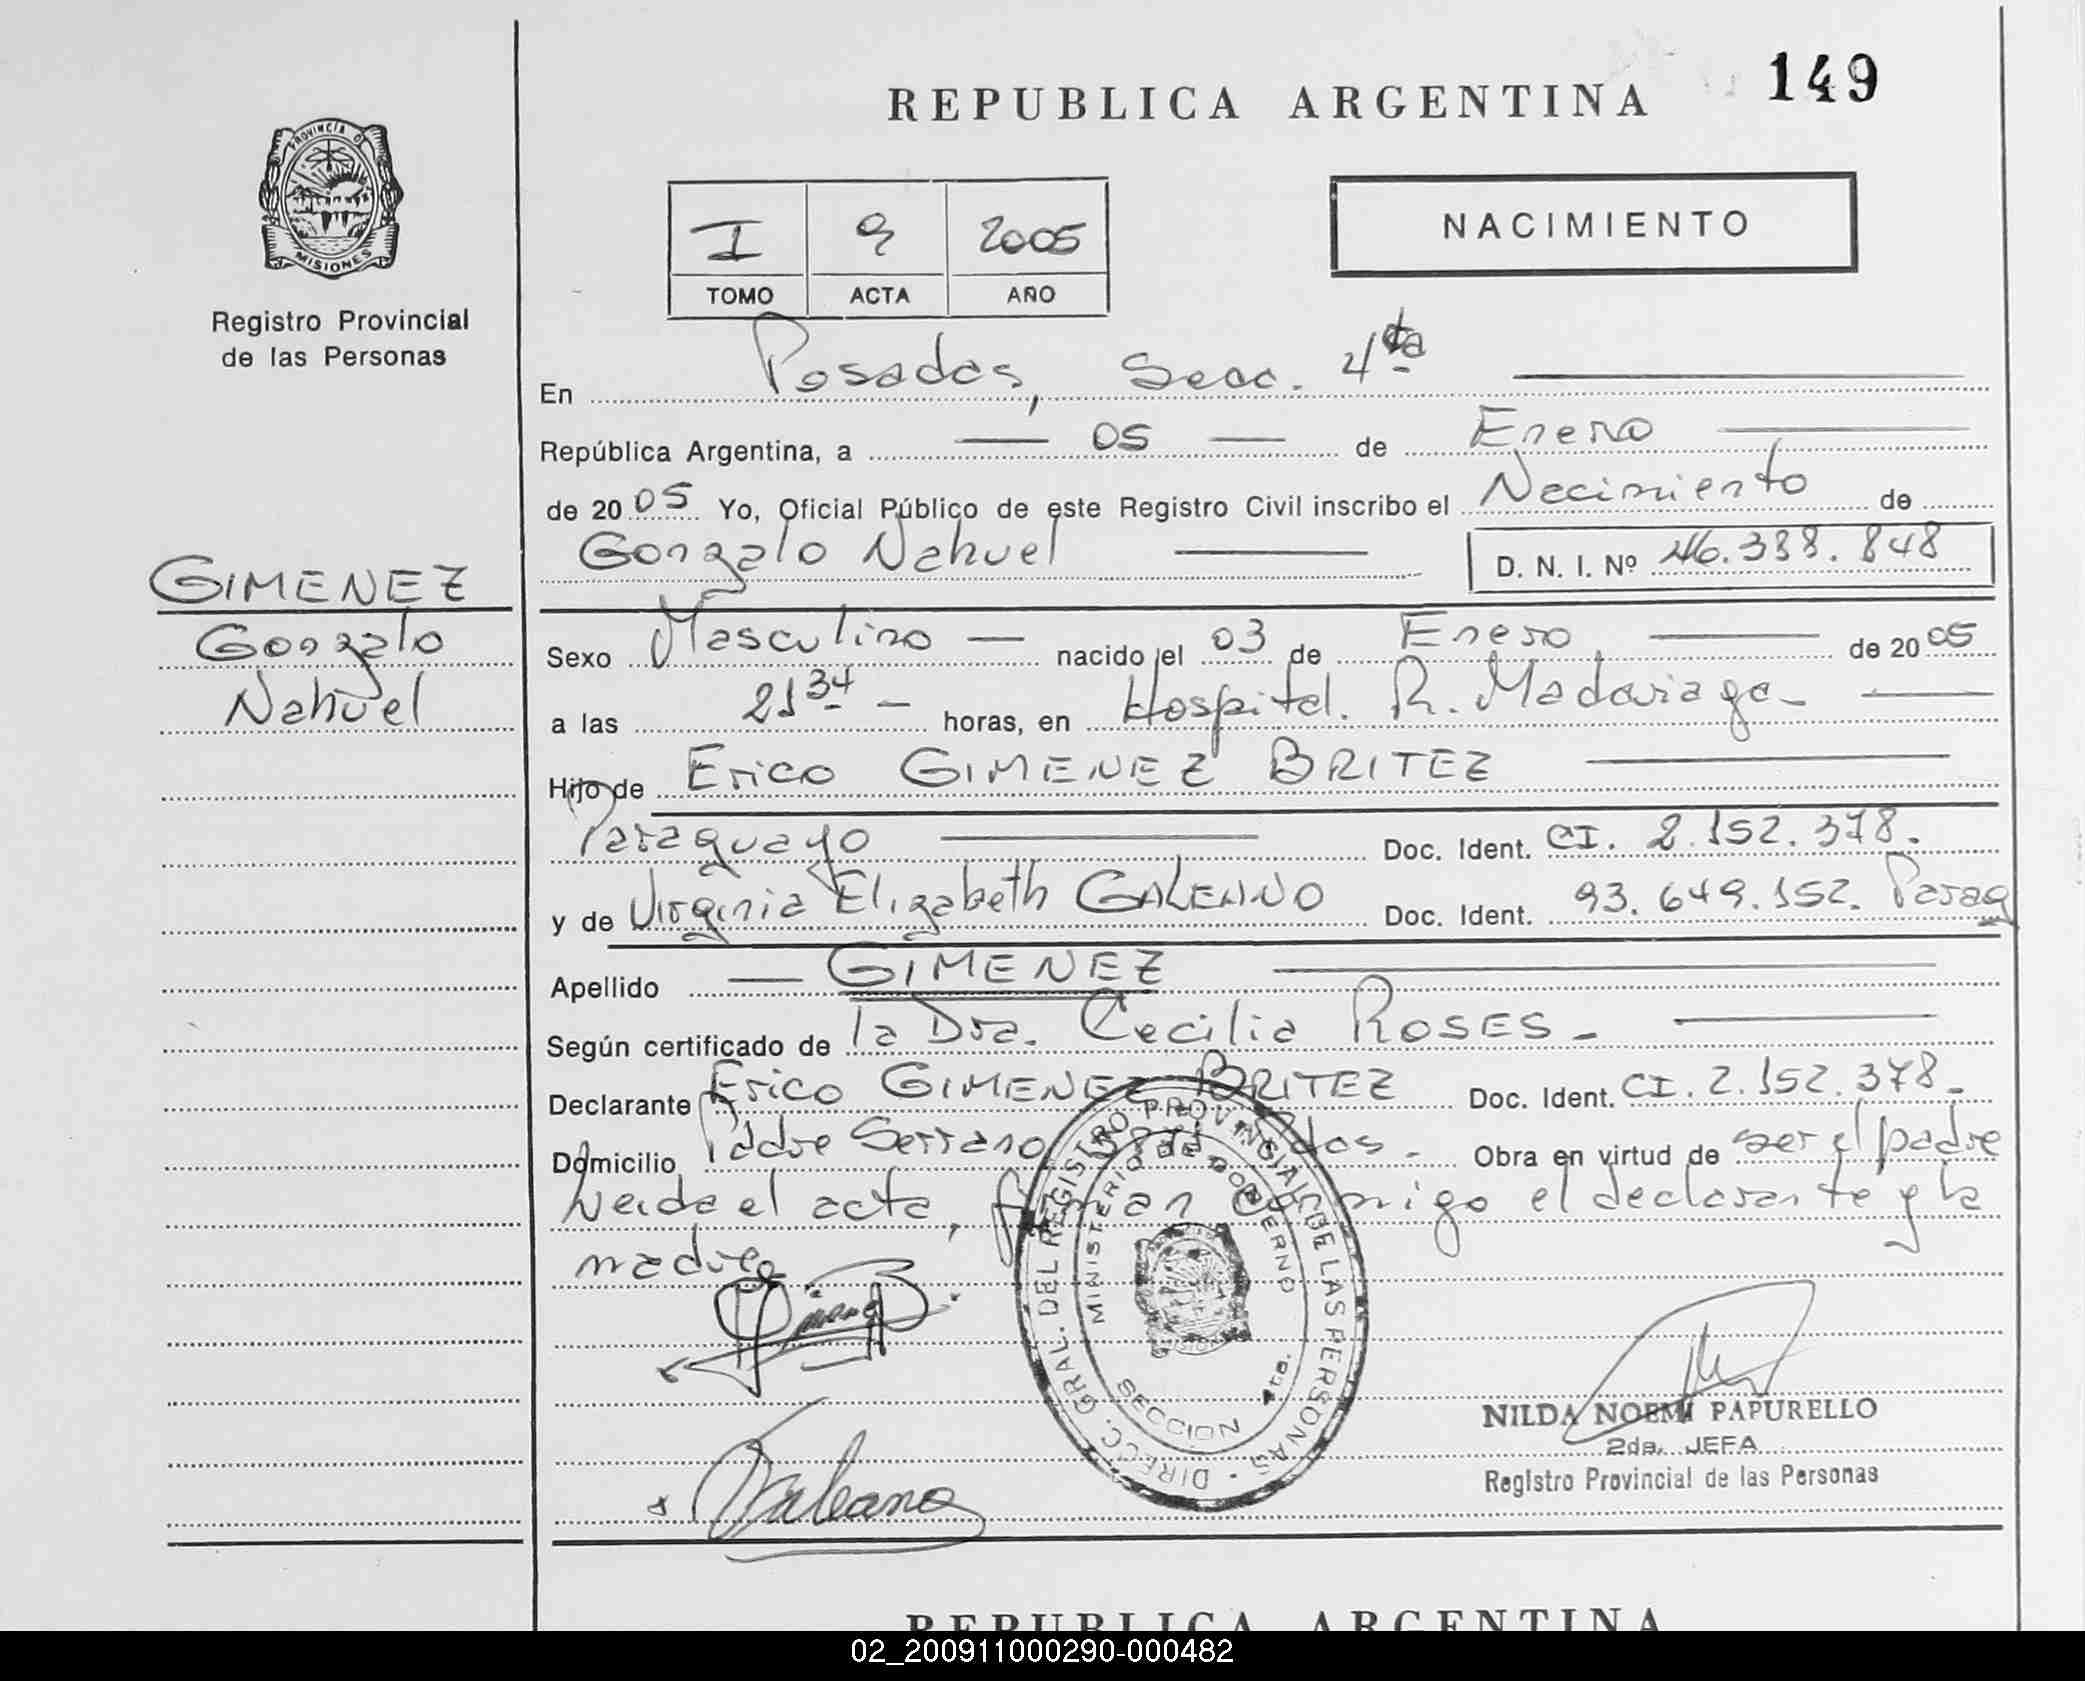 149
REPUBLICA ARGENTINA
PROVINCIA D
MISIONES
Registro Provincial
de las Personas
I 9 2005
TOMO ACTA AÑO
NACIMIENTO
En Posadas, Secc. 4ta
República Argentina, a 05 de Enero
de 2005 Yo, Oficial Público de este Registro Civil inscribo el Nacimiento de
Gonzalo Nahuel D. N. I. Nº 46.338.848
GIMENEZ
Gonzalo
Nahuel
Sexo Masculino nacido el 03 de Enero de 2005
a las 21 34 horas, en Hospital. R. Madariaga
Hijo de Erico GIMENEZ BRITEZ
Paraguayo Doc. Ident. CI. 2.152.378.
y de Virginia Elizabeth GALEANO Doc. Ident. 93.649.152. Parag
Apellido GIMENEZ
Según certificado de la Dra. Cecilia ROSES.
Declarante Erico GIMENEZ BRITEZ Doc. Ident. CI. 2.152.378.
Domicilio Padre Serrano Pdos. Obra en virtud de ser el padre
Leida el acta, firman conmigo el declarante y la
madre
DIRECC. GRAL. DEL REGISTRO PROVINCIAL DE LAS PERSONAS
MINISTERIO DE GOBIERNO
SECCION 4ta.
Galeano
NILDA NOEMI PAPURELLO
2da. JEFA
Registro Provincial de las Personas
REPUBLICA ARGENTINA
02_200911000290-000482